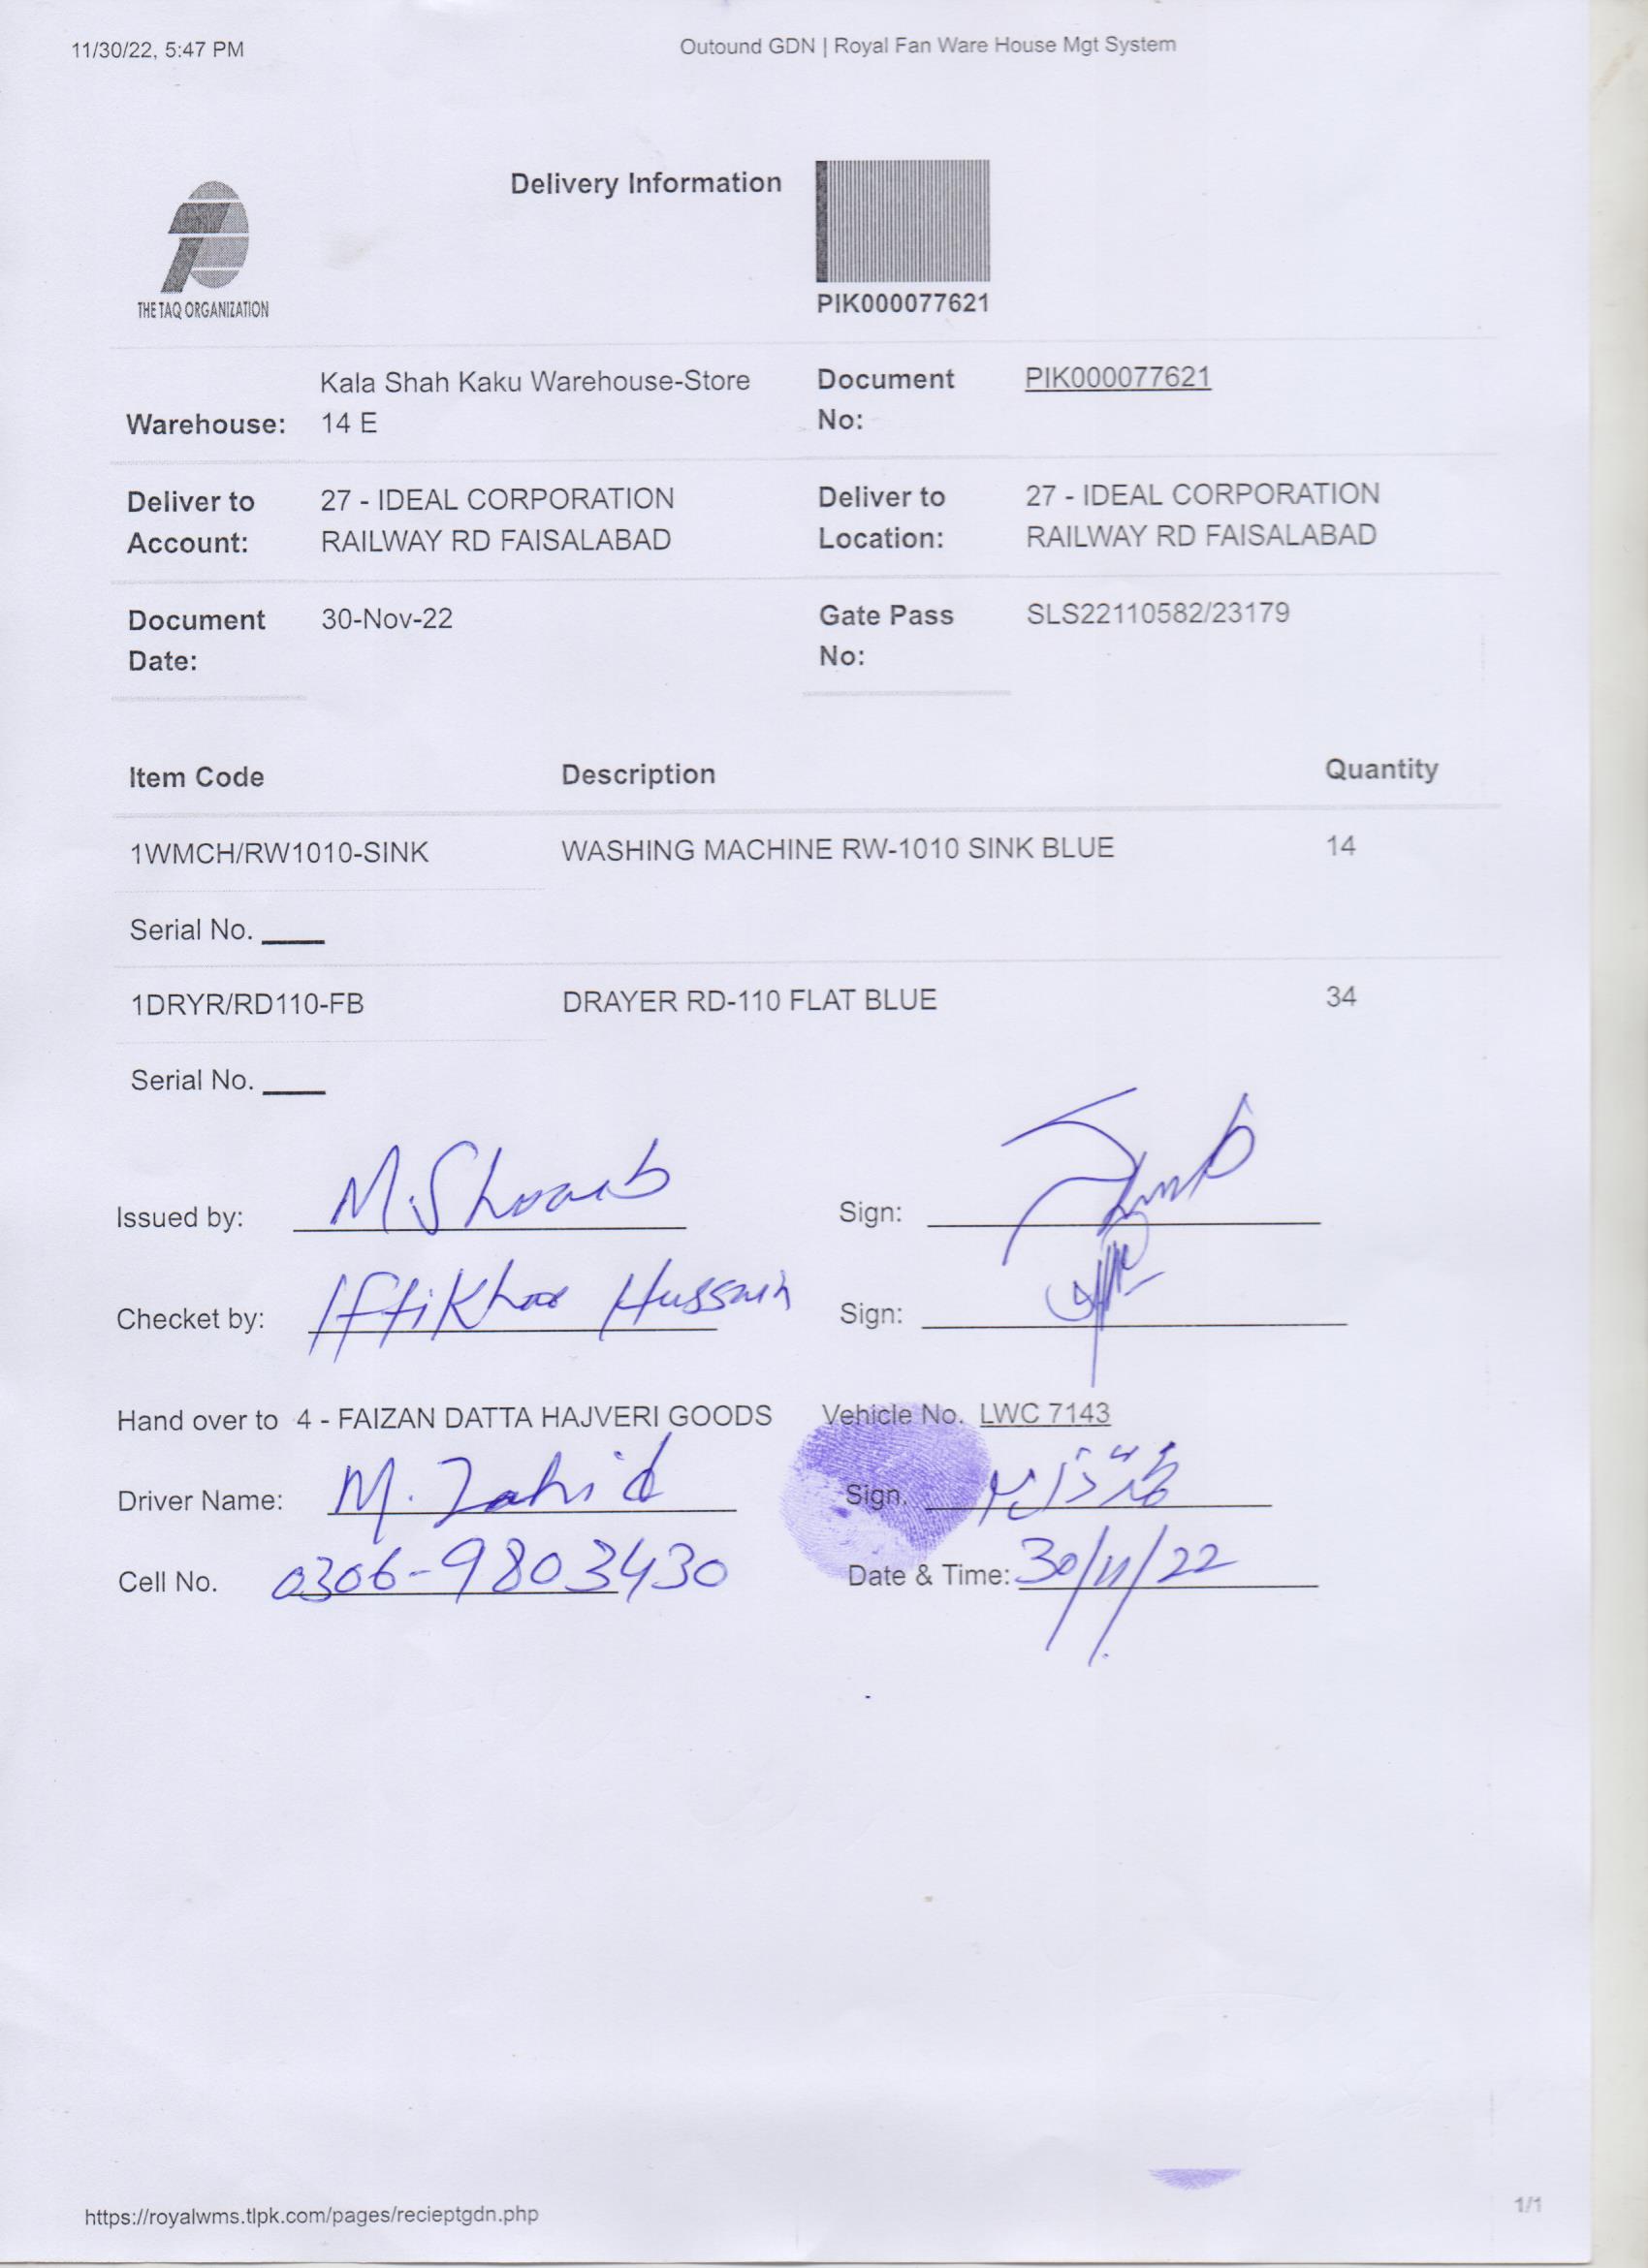 11/30/22, 5:47 PM Outound GDN | Royal Fan Ware House Mgt System
Delivery Information
THE TAQ ORGANIZATION
PIK000077621
Kala Shah Kaku Warehouse-Store Document PIK000077621
Warehouse: 14 E No:
Deliver to 27 - IDEAL CORPORATION Deliver to 27 - IDEAL CORPORATION
Account: RAILWAY RD FAISALABAD Location: RAILWAY RD FAISALABAD
Document 30-Nov-22 Gate Pass SLS22110582/23179
Date: No:
Item Code Description Quantity
1WMCH/RW1010-SINK WASHING MACHINE RW-1010 SINK BLUE 14
Serial No. ____
1DRYR/RD110-FB DRAYER RD-110 FLAT BLUE 34
Serial No. ____
Issued by: M. Shoaib Sign:
Checket by: Iftikhar Hussain Sign:
Hand over to 4 - FAIZAN DATTA HAJVERI GOODS Vehicle No. LWC 7143
Driver Name: M. Zahid Sign.
Cell No. 0306-9803430 Date & Time: 30/11/22
https://royalwms.tlpk.com/pages/recieptgdn.php 1/1